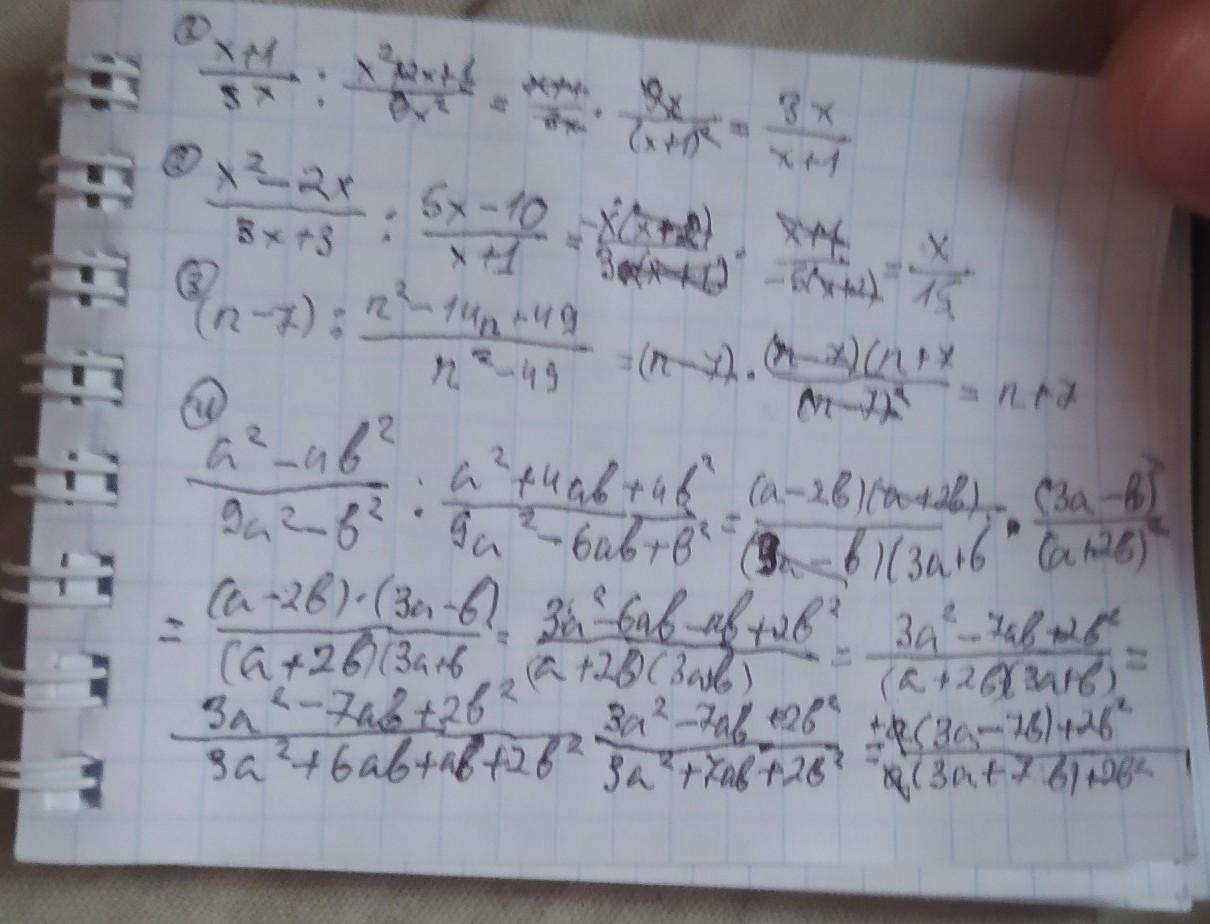 ① x+1/3x : x²+2x+1/9x² = x+1/3x · 9x/(x+1)² = 3x/x+1
② x²-2x/3x+3 : 5x-10/x+1 = -x(x+2)/3(x+1) · x+1/-5(x+2) = x/15
③ (n-7) : n²-14n+49/n²-49 = (n-7) · (n-7)(n+7/(n-7)² = n+7
④ a²-4b²/9a²-b² : a²+4ab+4b²/9a²-6ab+b² = (a-2b)(a+2b)/(3a-b)(3a+b · (3a-b)²/(a+2b)²
= (a-2b)·(3a-b)/(a+2b)(3a+b = 3a²-6ab-ab+2b²/(a+2b)(3a+b) = 3a²-7ab+2b²/(a+2b)(3a+b) =
3a²-7ab+2b²/3a²+6ab+ab+2b² 3a²-7ab+2b²/3a²+7ab+2b² = a(3a-7b)+2b²/a(3a+7b)+2b²